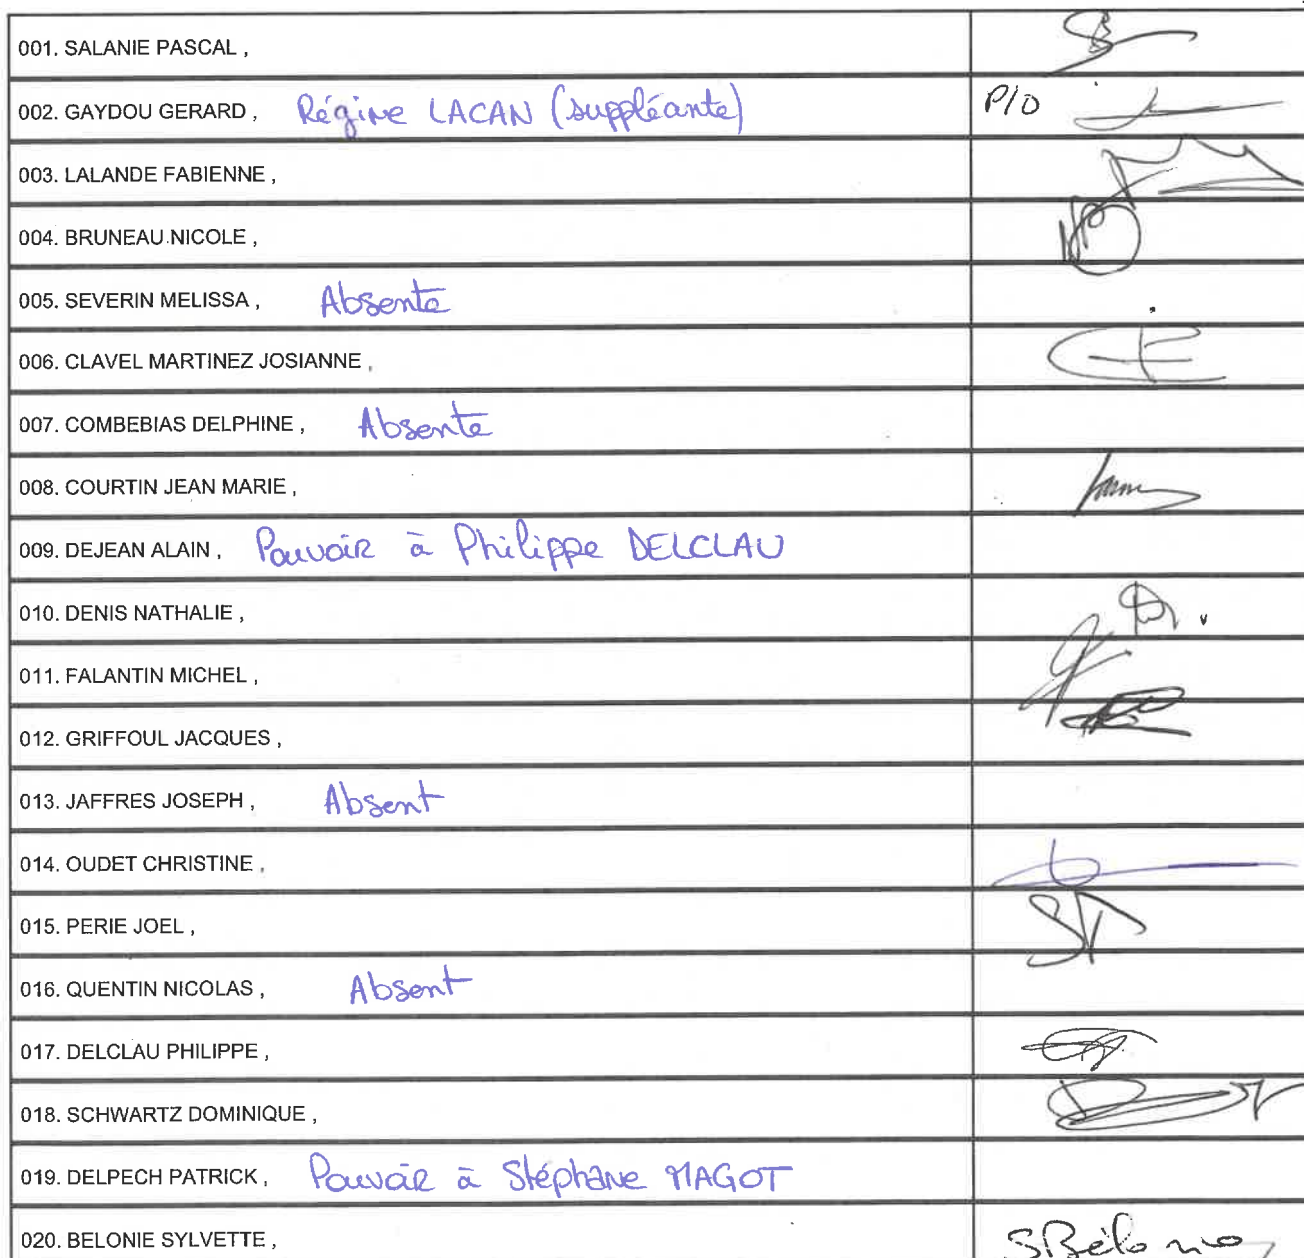 001. SALANIE PASCAL ,
002. GAYDOU GERARD , Régine LACAN (suppléante) P/O
003. LALANDE FABIENNE ,
004. BRUNEAU NICOLE ,
005. SEVERIN MELISSA , Absente
006. CLAVEL MARTINEZ JOSIANNE ,
007. COMBEBIAS DELPHINE , Absente
008. COURTIN JEAN MARIE ,
009. DEJEAN ALAIN , Pouvoir à Philippe DELCLAU
010. DENIS NATHALIE ,
011. FALANTIN MICHEL ,
012. GRIFFOUL JACQUES ,
013. JAFFRES JOSEPH , Absent
014. OUDET CHRISTINE ,
015. PERIE JOEL ,
016. QUENTIN NICOLAS , Absent
017. DELCLAU PHILIPPE ,
018. SCHWARTZ DOMINIQUE ,
019. DELPECH PATRICK , Pouvoir à Stéphane MAGOT
020. BELONIE SYLVETTE , SBélonie